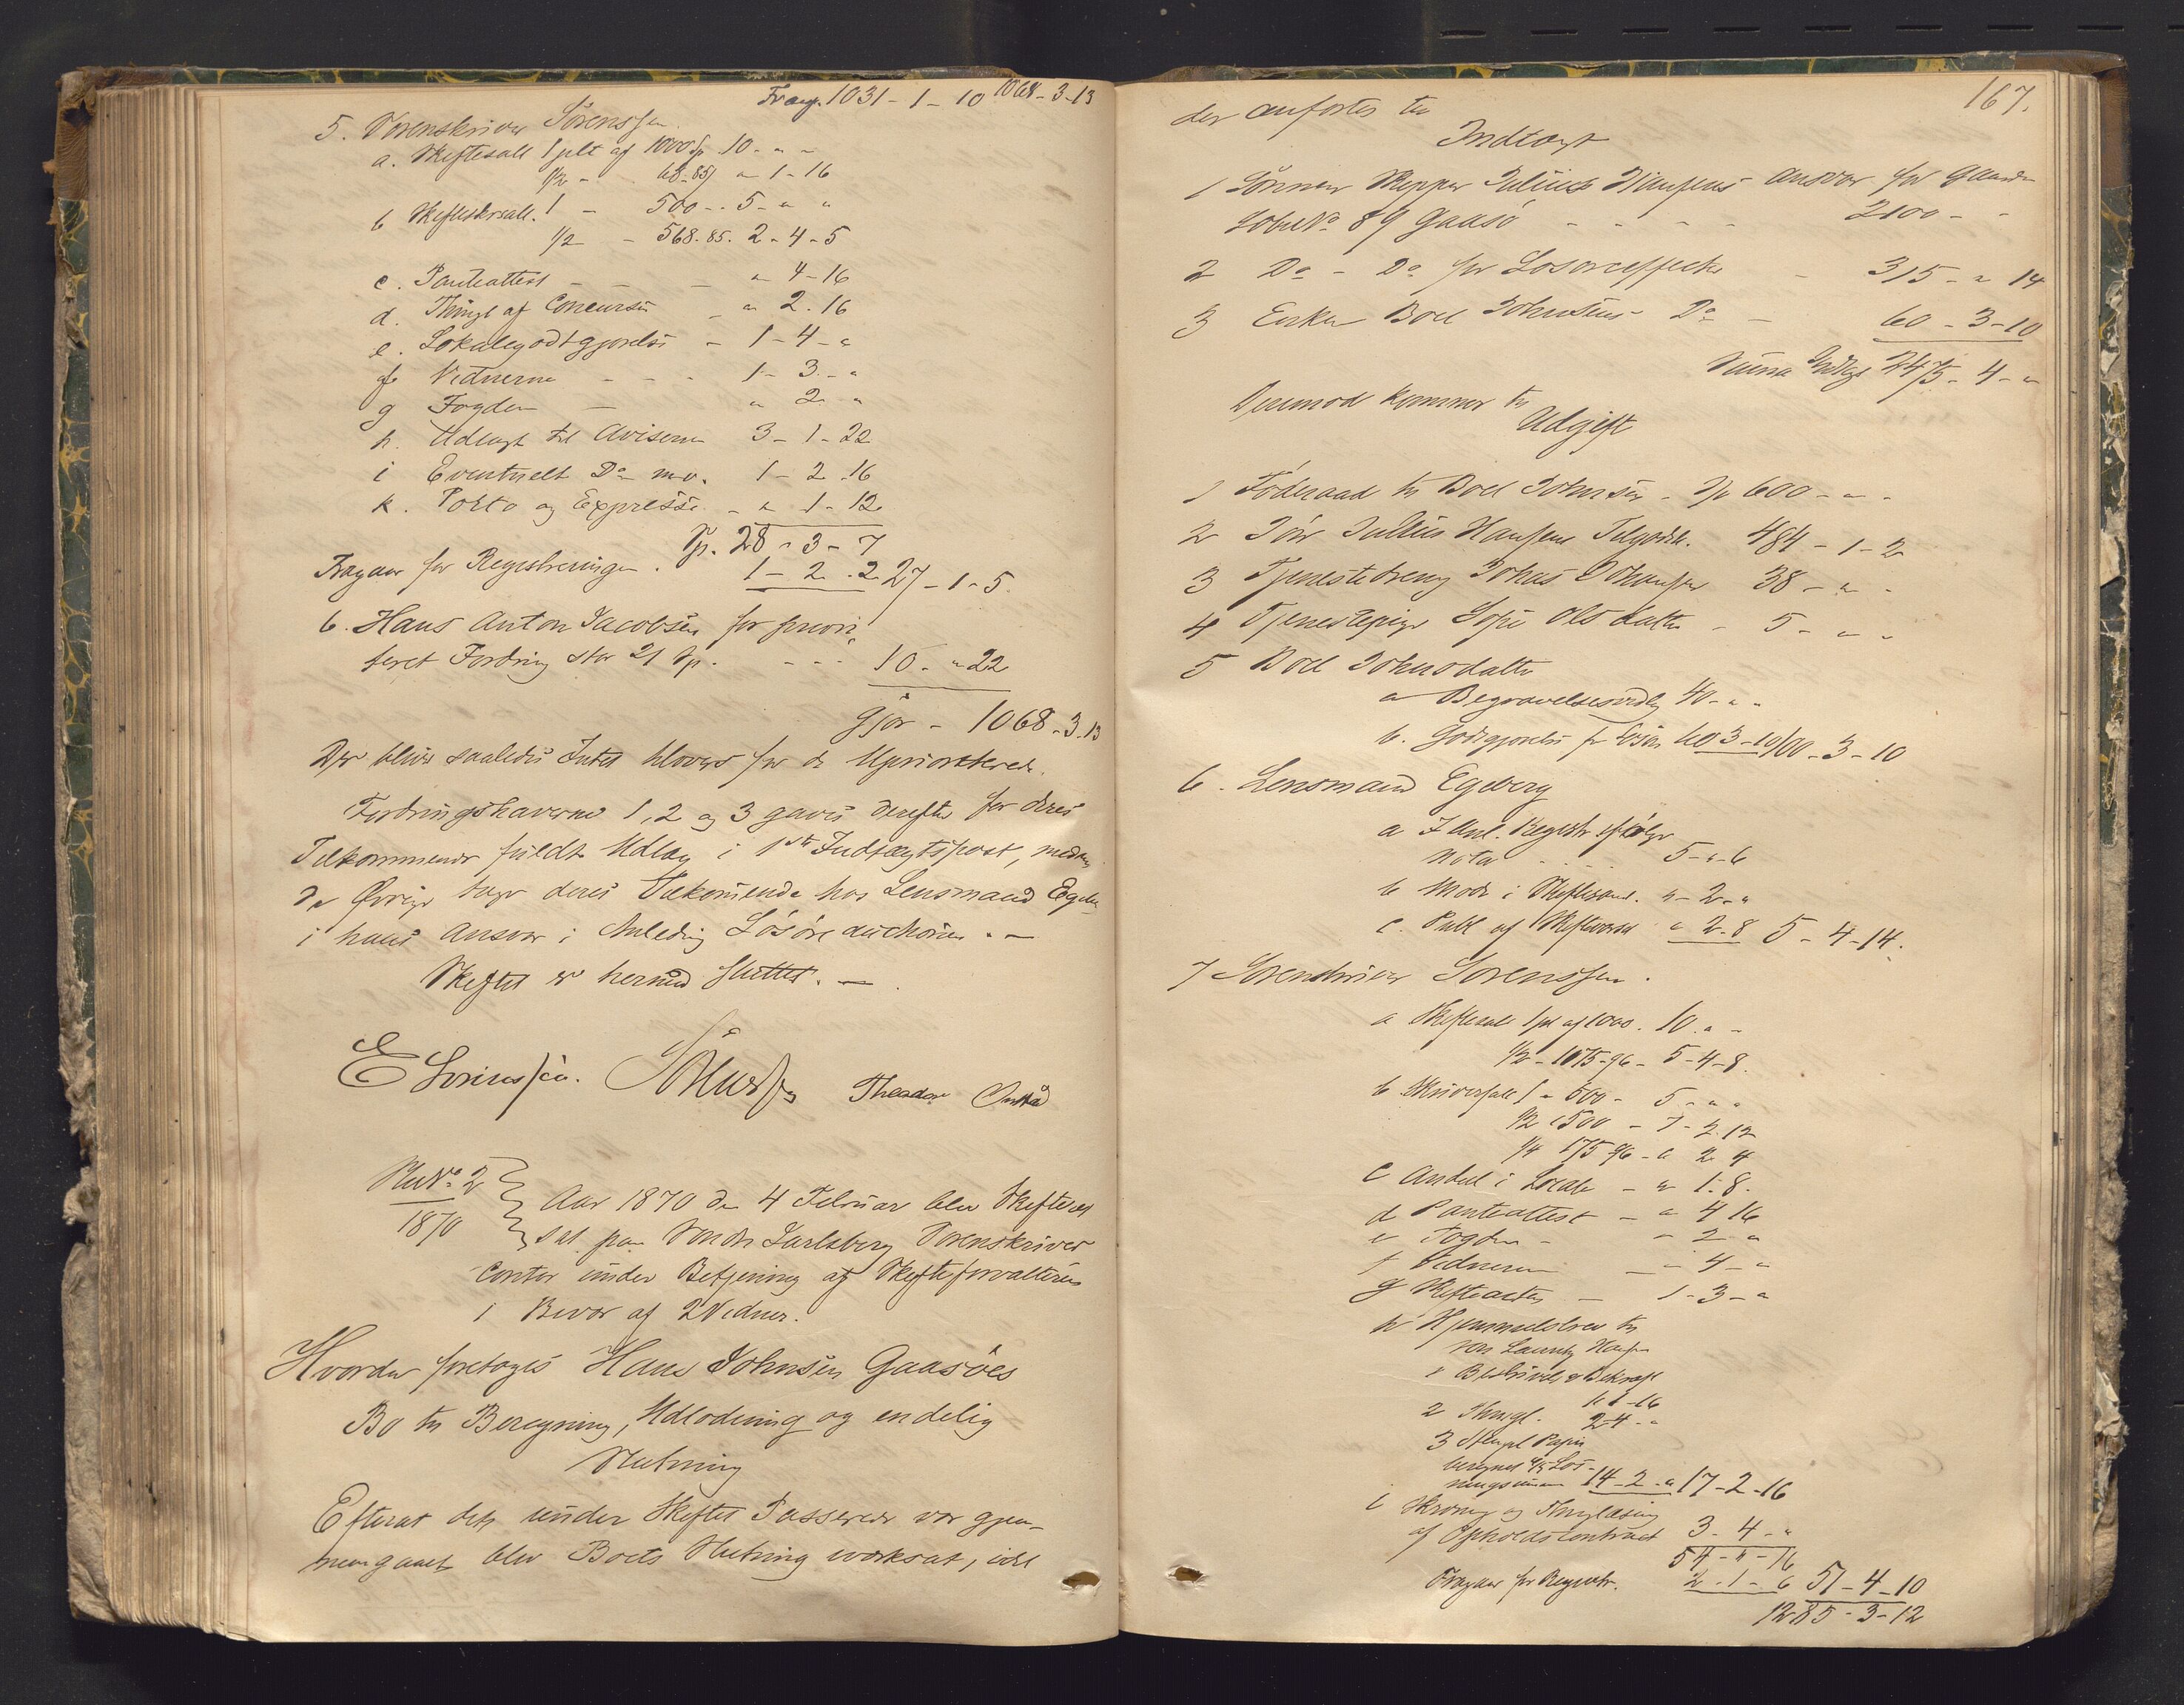 Transp. 1031 - 1 - 10 1068 - 3 - 13
5. Sorenskriver Sörenssen
a. Skiftesall 1 pCt af 1000 Sp 10 - " -
1/2 - 68-85 " 1 - 16
b Skifteskrsall. 1 - 500 - - 5 - " "
1/2 - 568.85. 2 - 4 - 5
c. Panteattest - - - " 4 - 16
d. Thingl af Concursen - " 2 - 16
e. Lokalegodtgjørelse - 1 - 4 - "
f Vidnerne - - - 1 - 3 - "
g Fogden - " 2 - "
h. Udlagt til Aviserne 3 - 1 - 22
i Eventuelt Do m.v. 1 - 2 - 16
k. Porto og Expresse - " 1 - 12
Sp. 28 - 3 - 7
Fragaar for Registreringen . 1 - 2 - 2 27 - 1 - 5.
6. Hans Anton Jacobsen for priori
teret Fordring stor 21 Sp. - - - 10 - " 22
Gjør - 1068 - 3 - 13
Der bliver saaledes Intet tilovers for de Uprioriterede.
Fordringshaverne 1, 2 og 3 gaves derefter for deres
Tilkommende fuldt Udlæg i 1ste Indtægtspost, medens
de Øvrige tage deres Tilkommende hos Lensmand Egeberg
i hans Ansvar i Anledning Løsøreauctionen. -
Skiftet er hermed sluttet. -
E Sørenssen. Theodor
No 2
1870
Aar 1870 den 4 Februar blev Skifteret
sat paa Søndre Jarlsberg Sorenskriver
Contor under Betjening af Skifteforvalteren
i Bivær af 2 Vidner.
Hvorda foretoges Hans Johnsen Gaasöes
Bo til Beregning, Udlodning og endelig
Slutning
Efterat det under Skiftet Passerede var gjen-
nemgaaet blev Boets Slutning værksat, idet
167.
der anførtes til
Indtægt
1 Sønnen Skipper Julius Hansens Ansvar for Gaarden
LøbeNo 89 Gaasö - - - - 2100 - -
2 Do - Do for Løsøreeffecter - 315 - " 14
3 Enken Boel Johnsens Do - 60 - 3 - 10
Summa Indtægt 2475 - 4 - "
Derimod kommer til
Udgift
1 Föderaad til Boel Johnsen - Sp 600 - " -
2 Søn Julius Hansens Tilgodeh. 484 - 1 - 2
3 Tjenestedreng Johans Johansen 38 - " -
4 Tjenestepige Sofie Olsdatter - 5 - " -
5 Boel Johnsdatter
a Begravelsesudlæg 40 - " -
b. Godtgjørelse for Løsøre 60 3 - 10 100 - 3 - 10
6. Lensmand Egeberg
a I Anl. Registr ifølge
Nota - - - - 5 - " - 6
b Møde i Skiftesaml. " - 2 - "
c. Publ af Skiftevæsen " 2 - 8 5 - 4 - 14.
7 Sorenskriver Sorenssen.
a Skiftesall 1 pCt af 1000. 10 " -
1/2 - 1175-96 - 5 - 4 - 8.
b Skriversall 1 - 500 - 5 - " -
1/2 1500 - 7 - 2 12
1/4 175 96 - " 2 4
c Andel i Locale - " 1 - 8.
d Panteattest - " 4 16
e Fogden - - 2 - "
f Vidnerne - - 4 - "
g Skifteacten - 1 - 3 - "
h Hjemmelsbrev til
1 Beskrivelse & Bekræft
" 1 - 16
2 Thingl. 2 - 4 - "
3 Stempl Papir
beregnet af Løs-
ningssummen 14 - 2 - " 17 - 2 - 16
i Skrivning og Thinglæsning
af Opholdscontract 3 - 4 - "
54 - " - 16
Fragaar for Registr. 2 - 1 - 6 51 - 4 - 10
1285 - 3 - 12